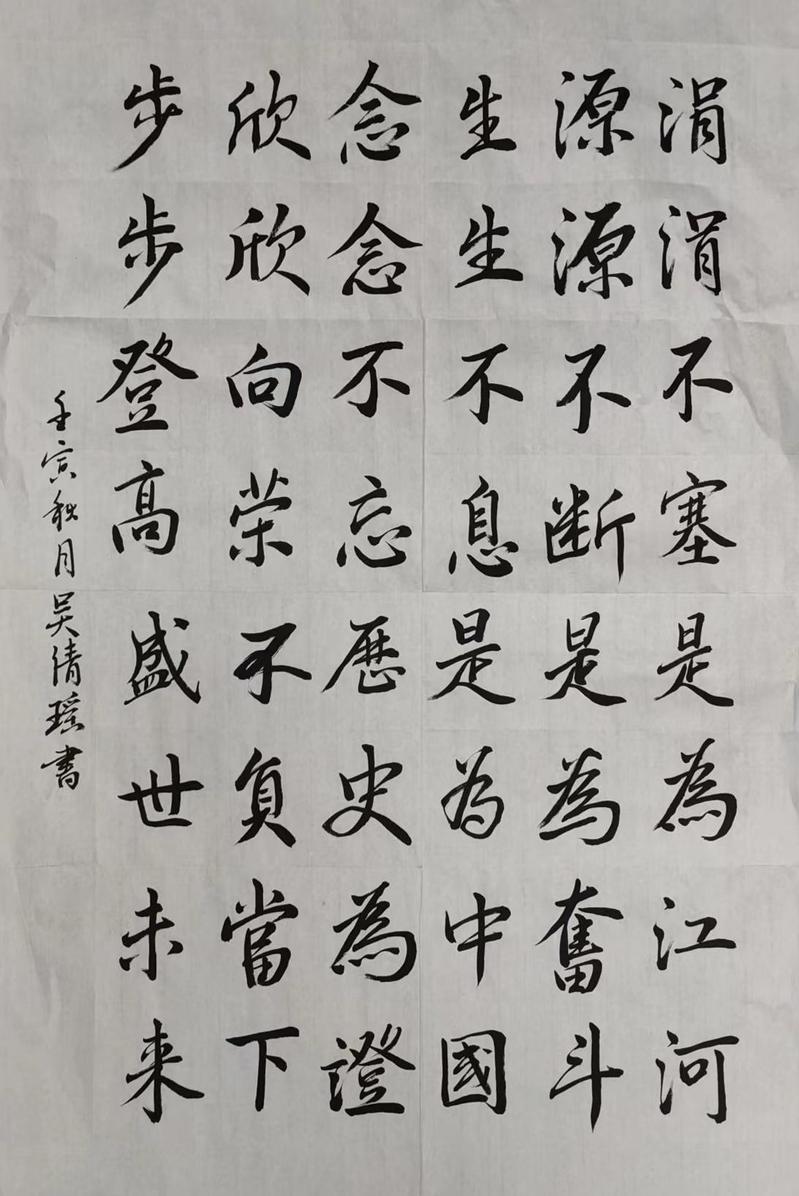 涓涓不塞是為江河
源源不断是為奮斗
生生不息是為中國
念念不忘歷史為證
欣欣向荣不負當下
步步登高盛世未来
壬寅秋月吴清瑶書